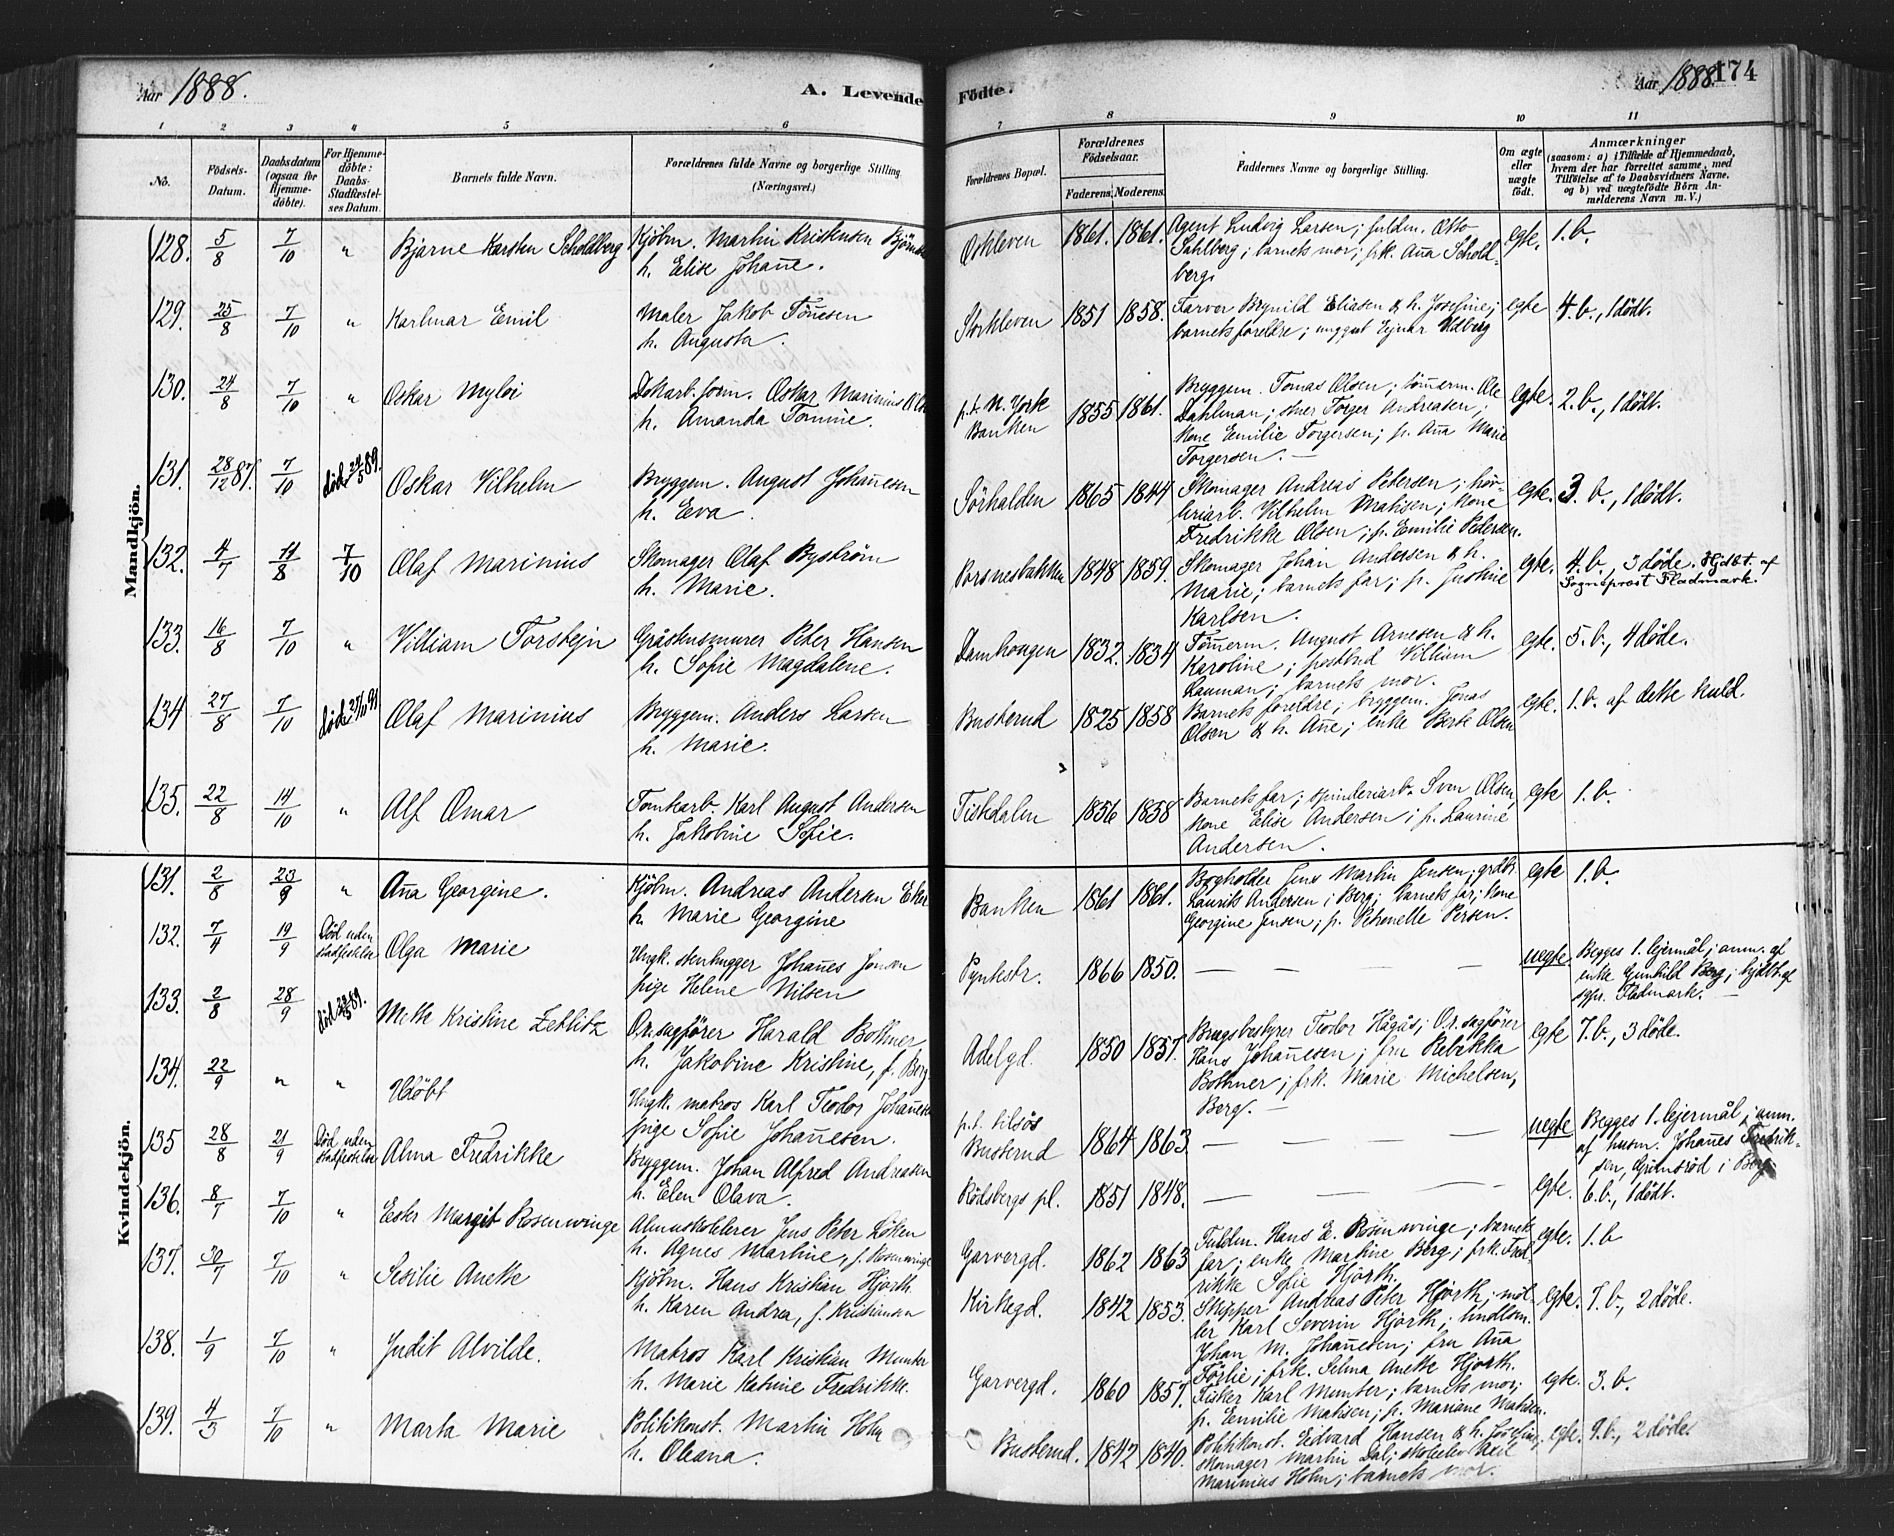 Aar 1888.
A. Levende Födte.
Aar 1888. 174
1 2 3 4 5 6 7 8 9 10 11
No.
Födsels-Datum.
Daabsdatum (ogsaa for Hjemme-döbte).
For Hjemme-döbte: Daabs-Stadfæstel-ses Datum.
Barnets fulde Navn.
Forældrenes fulde Navne og borgerlige Stilling (Næringsvei.)
Forældrenes Bopæl.
Forældrenes Födselsaar.
Faderens. Moderens.
Faddernes Navne og borgerlige Stilling.
Om ægte eller uægte födt.
Anmærkninger
(saasom: a) i Tilfælde af Hjemmedaab, hvem der har forrettet samme, med Tilföielse af to Daabsvidners Navne, og b) ved uægtefödte Börn An-melderens Navn m. V.)
Mandkjön.
128. 5/8 7/10 " Bjarne Karsten Scholdberg Kjöbm. Martin Kristensen
h. Elise Johanne.
Oskleven 1861. 1861. Agent Ludvig Larsen; fuldm. Otto
Sahlberg; barnets mor; frk. Ana Schold-
berg.
egte. 1.b.
129. 25/8 7/10 " Karlmar Emil Maler Jakob Tönesen
h. Augusta.
Storkleven 1851 1858. Farver Brynild Eliasen & h. Josefine;
barnets foreldre; unggut Ejnar Udberg
egte 4.b., 1 dödt.
130. 24/8 7/10 " Oskar Myloi Dokarb. form. Oskar Marinius
h. Amanda Tomine.
p.t. N. York
Banken 1855 1861. Bryggem. Tomas Olsen; tömerm. Ole
Dahlman; stuer Torger Andreasen;
Kone Emilie Torgersen; p. Ana Marie
Torgersen.
egte. 2.b., 1 dödt.
131. 28/12 87. 7/10 död 89. Oskar Vilhelm Bryggem. August Johanesen
h. Eva.
Sörhalden 1865 1844 Skomager Andreas Petersen; höv-
leriarb. Vilhelm Matisen; Kone
Fredrikke Olsen; p. Emilie Petersen.
egte. 3.b., 1 dödt.
132. 4/7 14/8 7/10 Olaf Marinius Skomager Olaf Byström
h. Marie.
Porsnesbakken 1848 1859. Skomager Johan Andersen & h.
Marie; barnets far; p. Justine
Karlsen.
egte. 4.b., 3 döde. Hjdbt. af
Sogneprost Fladmark.
133. 16/8 7/10 " Villiam Torstejn Gråstensmurer Peter Hansen
h. Sofie Magdalene.
Damhougen 1832. 1834 Tömerm. August Arnesen & h.
Karoline; postbud Villiam
Lauman; barnets mor.
egte. 5.b., 4 döde.
134 27/8 7/10 död 91 Olaf Marinius Bryggem. Anders Larsen
h. Marie.
Busterud 1825 1858 Barnets foreldre; bryggem. Jonas
Olsen & h. Ane; enke Berte Olsen
egte. 1.b. af dette kuld.
135. 22/8 14/10 " Alf Omar Tomtearb. Karl August Andersen
h. Jakobine Sofie.
Tistedalen 1856 1858 Barnets far; spinderiarb. Sven Olsen,
Kone Elise Andersen; p. Laurine
Andersen.
egte 1.b.
Kvindekjön.
131. 2/8 23/9 " Ana Georgine. Kjöbm. Andreas Andersen
h. Marie Georgine
Banken 1861 1861. Bogholder Jens Martin Jensen; grdbr.
Laurits Andersen i Berg; barnets far; Kone
Georgine Jensen; p. Petronelle Persen.
egte 1.b.
132. 7/4 19/9 Död uden
stadfestelse Olga Marie Ungk. stenhugger Johanes Jonsen
pige Helene Nilsen
Pyntestr. 1866 1850. — — — —
uegte. Begges 1. lejermål; anm. af
enke Gunhild Berg; hjdbt. af
sgpr. Fladmark.
133. 2/8 28/9 död 89. Mette Kristine Zetlitz Or. sagförer Harald Bothner
h. Jakobine Kristine, f. Berg.
Adelgd. 1850 1857. Brugsbestyrer Teodor Hågås; Or. sagförer
Hans Johanesen; fru Rebekka
Bothner; frk. Marie Michelsen,
Berg.
egte 7.b., 3 döde.
134. 22/9 " " Udöbt Ungk. matros Karl Teodor Johanesen
pige Sofie Johanesen.
p.t. tilsös
Busterud 1864 1863 — — — —
uegte Begges 1. lejermål; anm.
af husm. Johanes Fredrik-
sen, Grimsröd i Berg.
135 28/8 21/9 Död uden
stadfestelse Alma Fredrikke Bryggem. Johan Alfred Andreasen
h. Elen Olava.
Rödsbergs pl. 1851 1848. — — — —
egte. 6.b., 1 dödt.
136. 8/7 7/10 " Ester Margit Rosenwinge Almueskolelerer Jens Peter Löken
h. Agnes Martine, f. Rosenwinge
Garvergd. 1862 1863 Fuldm. Hans E. Rosenwinge; barnets
far; enke Martine Berg; frk. Fred-
rikke Sofie Hjorth.
egte. 1.b
137. 30/7 7/10 " Sesilie Anette Kjöbm. Hans Kristian Hjorth
h. Karen Andrea, f. Kristiansen
Kirkegd. 1842 1853. Skipper Andreas Peter Hjorth; möl-
ler Karl Severin Hjorth;
Johan M. Johanesen; fru Ana
Förlie; frk. Selma Anette Hjorth.
egte. 7.b., 2 döde.
138. 1/9 7/10 " Judit Alvilde. Matros Karl Kristian Munter
h. Marie Katrine Fredrikke.
Garvergd. 1860 1857. Fisker Karl Munter; barnets mor;
p. Emilie Matisen; p. Mariane Matisen.
egte. 3.b.
139. 4/3 7/10 " Marta Marie Politikonst. Martin Holm
h. Oleana.
Busterud. 1842 1840. Politikonst. Edvard Hansen & h. Josefine;
skomager Martin Dal; skoleelev Axel
Marinius Holm; barnets mor.
egte. 9.b., 2 döde.